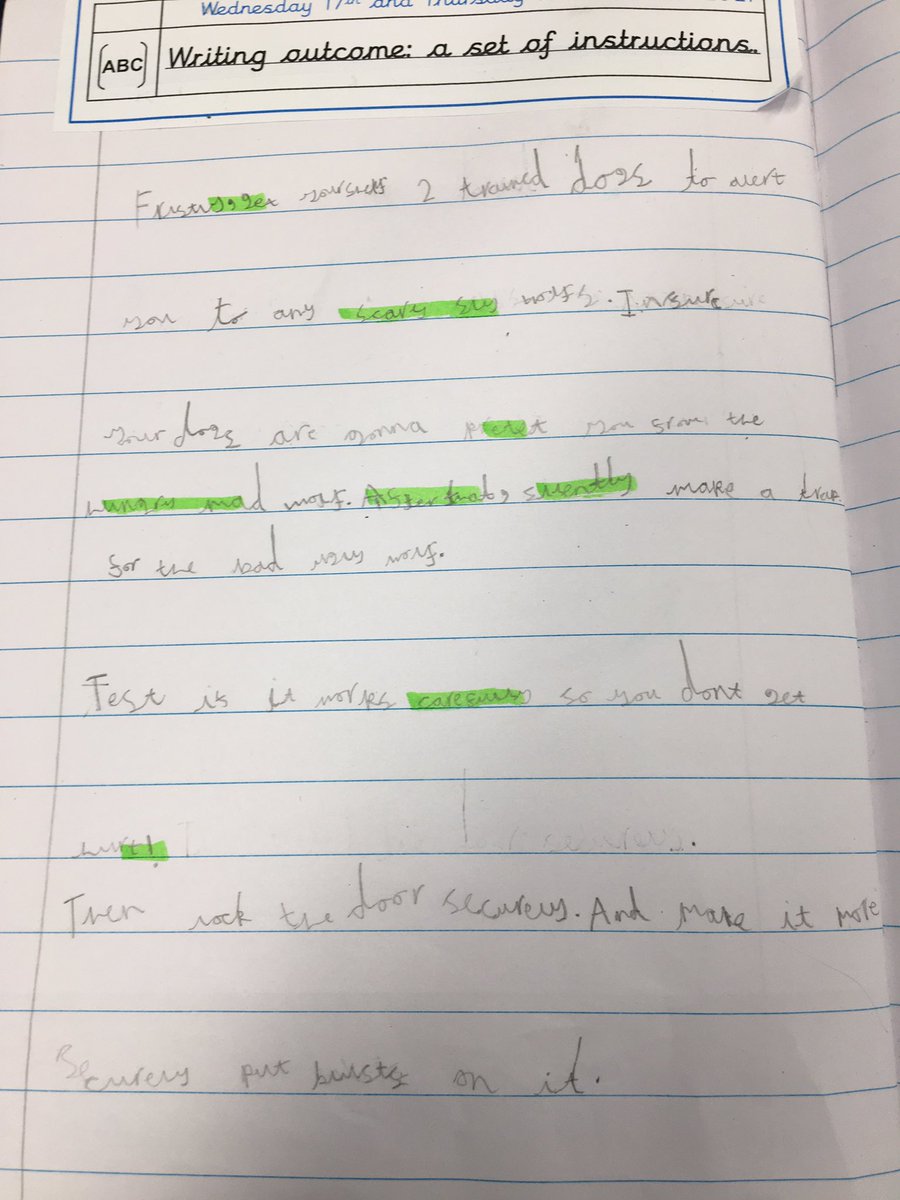 Wednesday 17th and Thursday
(ABC) Writing outcome: a set of instructions.
2 trained dogs to alert
you to any scary sly wolfs. Insure
your dogs are gonna you from the
hungry mad wolf. After that, silently make a trap
for the bad ugly wolf.
Test if it works carefully so you dont get
hurt!
Then lock the door securely. And make it more
Securely put on it.